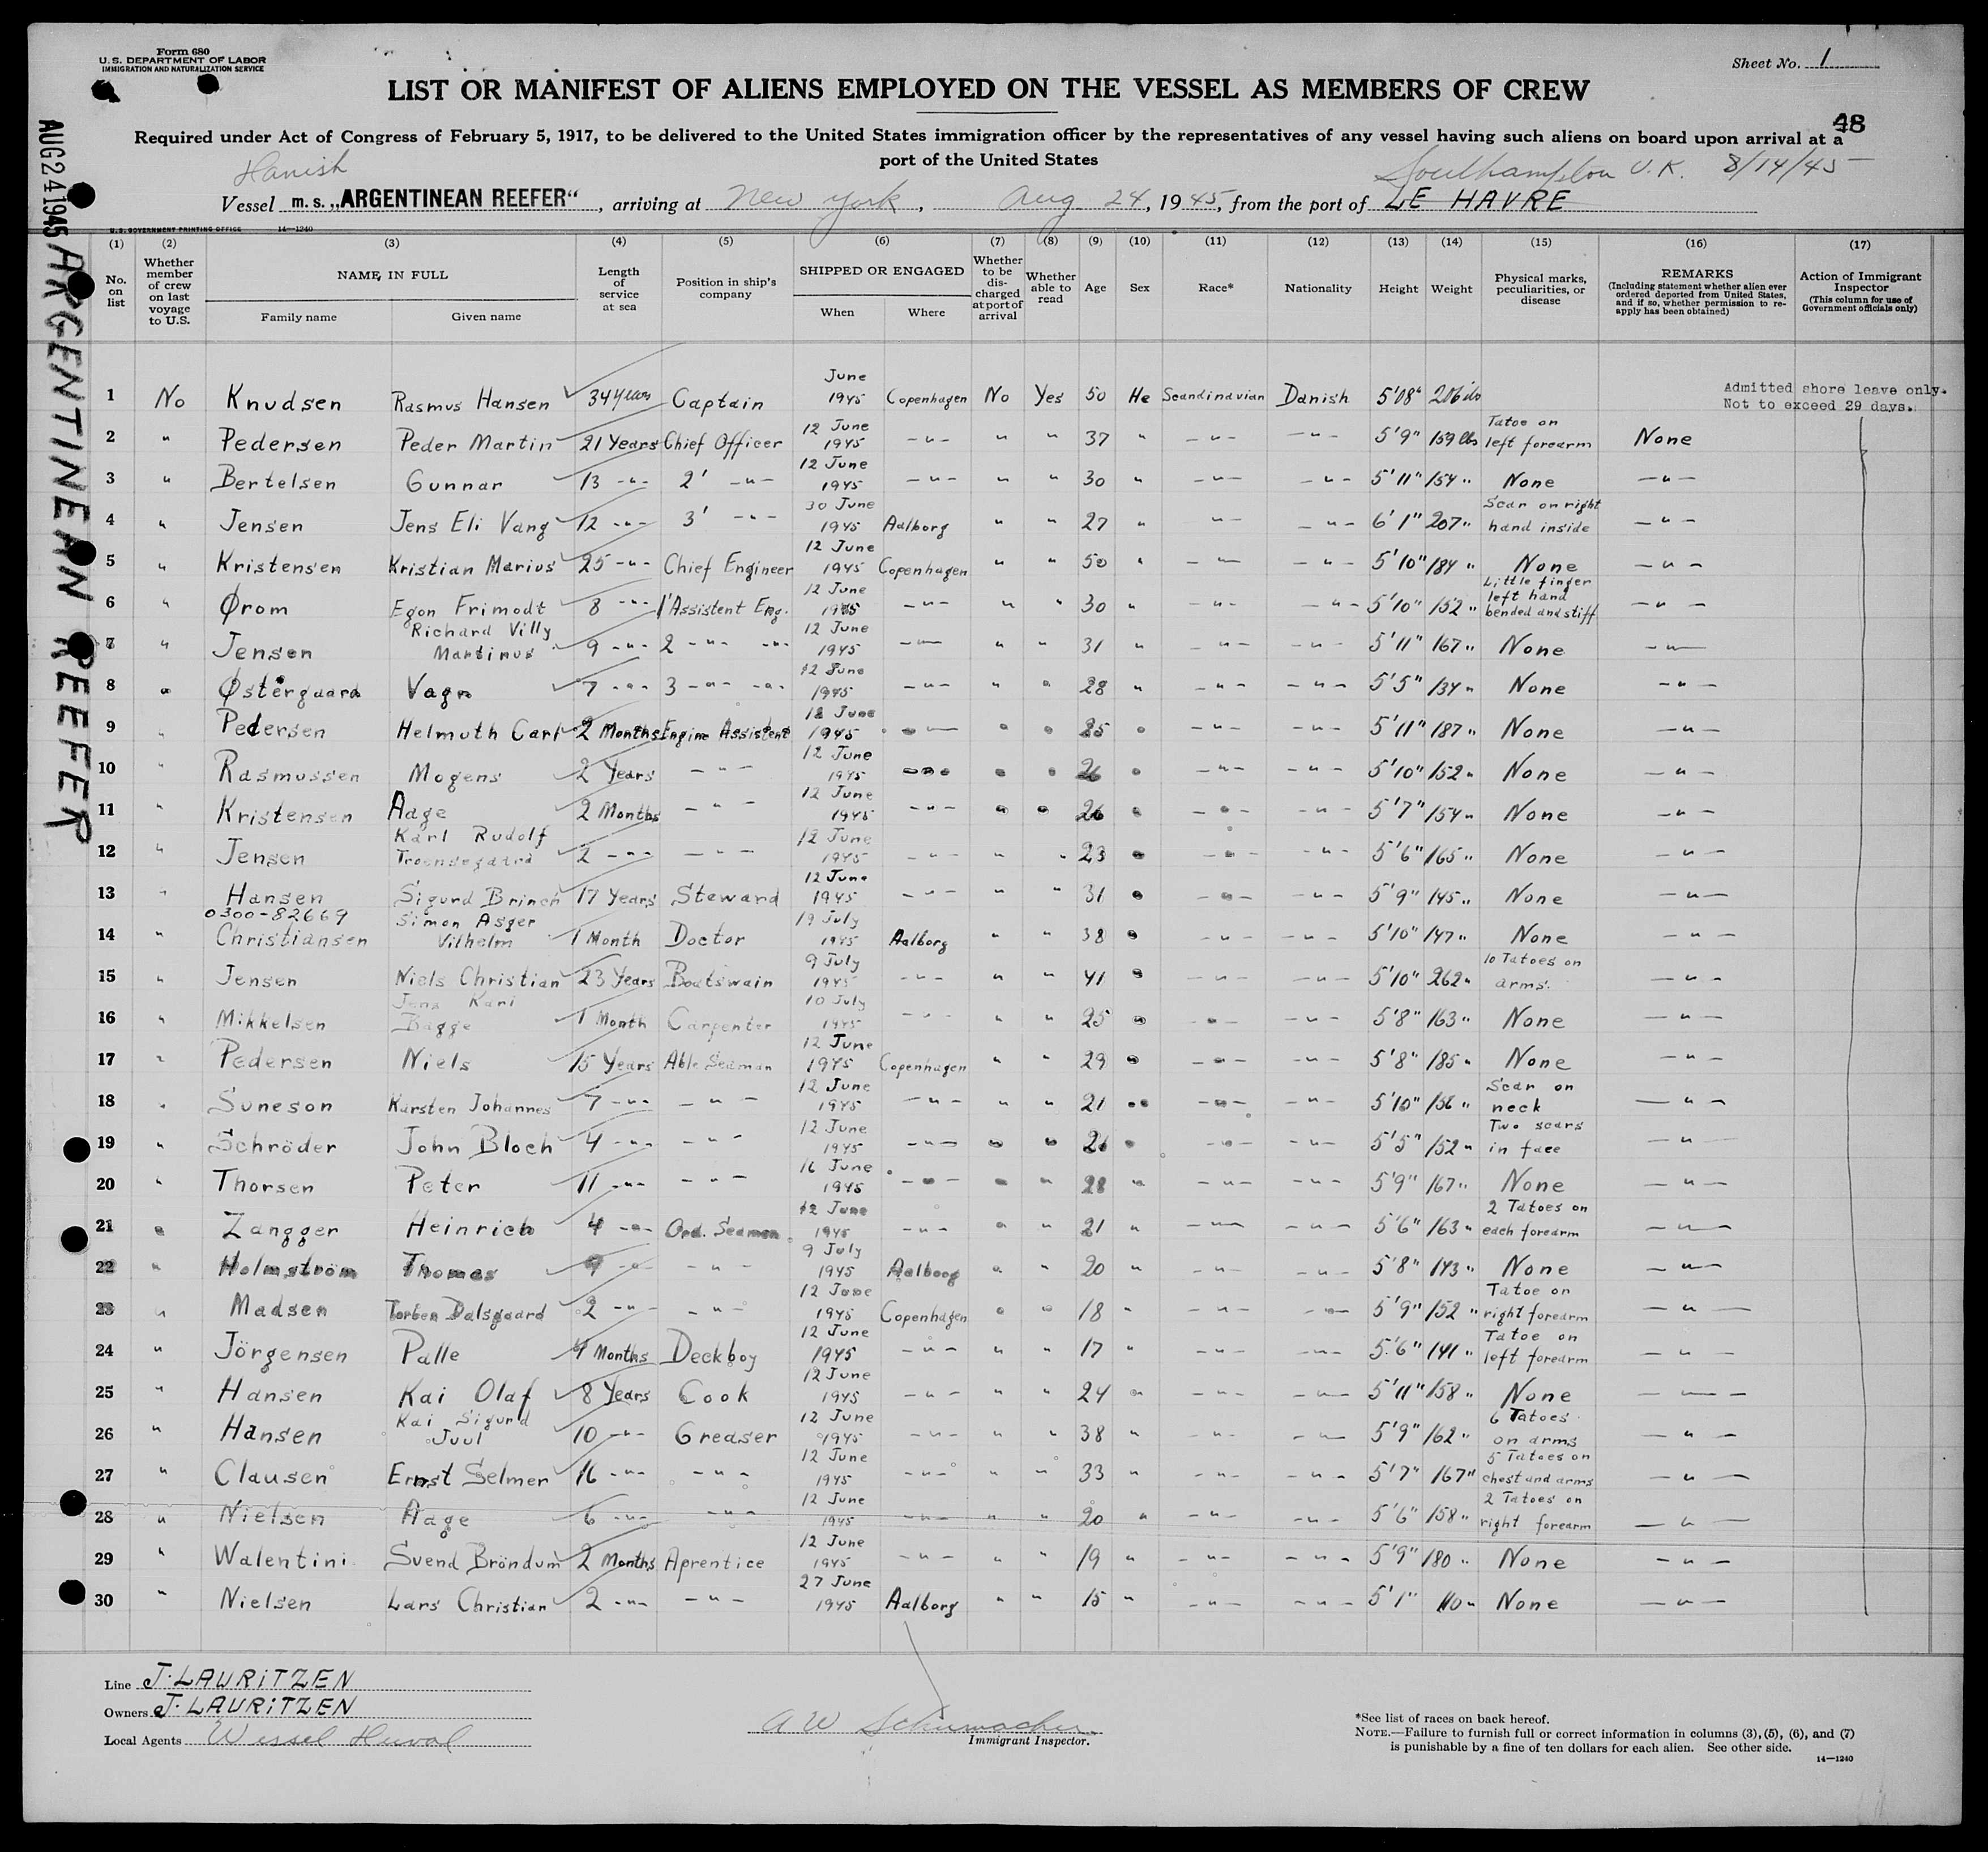 Form 680
U.S. DEPARTMENT OF LABOR
IMMIGRATION AND NATURALIZATION SERVICE
Sheet No. 1
LIST OR MANIFEST OF ALIENS EMPLOYED ON THE VESSEL AS MEMBERS OF CREW
48
Required under Act of Congress of February 5, 1917, to be delivered to the United States immigration officer by the representatives of any vessel having such aliens on board upon arrival at a
port of the United States
Southampton U.K. 8/14/45
Vessel m. s. „ARGENTINEAN REEFER“, arriving at New York, Aug 24, 1945, from the port of LE HAVRE
AUG 24 1945
ARGENTINEAN REEFER
U.S. GOVERNMENT PRINTING OFFICE 14—1240
(1) (2) (3) (4) (5) (6) (7) (8) (9) (10) (11) (12) (13) (14) (15) (16) (17)
No. on list
Whether member of crew on last voyage to U.S.
NAME IN FULL
Family name Given name
Length of service at sea
Position in ship's company
SHIPPED OR ENGAGED
When Where
Whether to be discharged at port of arrival
Whether able to read
Age
Sex
Race*
Nationality
Height
Weight
Physical marks, peculiarities, or disease
REMARKS
(Including statement whether alien ever ordered deported from United States, and if so, whether permission to reapply has been obtained)
Action of Immigrant Inspector
(This column for use of Government officials only)
1 No Knudsen Rasmus Hansen 34 years Captain June 1945 Copenhagen No Yes 50 He Scandinavian Danish 5'08" 206 lbs
Admitted shore leave only.
Not to exceed 29 days.
2 " Pedersen Peder Martin 21 Years Chief Officer 12 June 1945 -"- " " 37 " -"- -"- 5'9" 159 lbs Tatoe on left forearm None
3 " Bertelsen Gunnar 13 -"- 2' -"- 12 June 1945 -"- " " 30 " -"- -"- 5'11" 154 " None -"-
4 " Jensen Jens Eli Vang 12 -"- 3' -"- 30 June 1945 Aalborg " " 27 " -"- -"- 6'1" 207 " Scar on right hand inside -"-
5 " Kristensen Kristian Marius 25 -"- Chief Engineer 12 June 1945 Copenhagen " " 50 " -"- -"- 5'10" 184 " None -"-
6 " Ørom Egon Frimodt 8 -"- 1' Assistent Eng. 12 June 1945 -"- " " 30 " -"- -"- 5'10" 152 " Little finger left hand bended and stiff -"-
7 " Jensen Richard Villy Martinus 9 -"- 2 -"- -"- 12 June 1945 -"- " " 31 " -"- -"- 5'11" 167 " None -"-
8 " Østergaard Vagn 7 -"- 3 -"- -"- 12 June 1945 -"- " " 28 " -"- -"- 5'5" 134 " None -"-
9 " Pedersen Helmuth Carl 2 Months Engine Assistent 12 June 1945 -"- " " 25 " -"- -"- 5'11" 187 " None -"-
10 " Rasmussen Mogens 2 Years -"- 12 June 1945 -"- " " 26 " -"- -"- 5'10" 152 " None -"-
11 " Kristensen Aage 2 Months -"- 12 June 1945 -"- " " 26 " -"- -"- 5'7" 154 " None -"-
12 " Jensen Karl Rudolf 2 -"- -"- 12 June 1945 -"- " " 23 " -"- -"- 5'6" 165 " None -"-
13 " Hansen Sigurd Brinch 17 Years Steward 12 June 1945 -"- " " 31 " -"- -"- 5'9" 145 " None -"-
0300-82669
14 " Christiansen Simon Asger Vilhelm 1 Month Doctor 19 July 1945 Aalborg " " 38 " -"- -"- 5'10" 147 " None -"-
15 " Jensen Niels Christian 23 Years Boatswain 9 July 1945 -"- " " 41 " -"- -"- 5'10" 262 " 10 Tatoes on arms. -"-
16 " Mikkelsen Jens Karl Bagge 1 Month Carpenter 10 July 1945 -"- " " 25 " -"- -"- 5'8" 163 " None -"-
17 " Pedersen Niels 15 Years Able Seaman 12 June 1945 Copenhagen " " 29 " -"- -"- 5'8" 185 " None -"-
18 " Suneson Karsten Johannes 7 -"- -"- 12 June 1945 -"- " " 21 " -"- -"- 5'10" 156 " Scar on neck -"-
19 " Schröder John Bloch 4 -"- -"- 12 June 1945 -"- " " 21 " -"- -"- 5'5" 152 " Two scars in face -"-
20 " Thorsen Peter 11 -"- -"- 16 June 1945 -"- " " 28 " -"- -"- 5'9" 167 " None -"-
21 " Zangger Heinrich 4 -"- Ord. Seaman 12 June 1945 -"- " " 21 " -"- -"- 5'6" 163 " 2 Tatoes on each forearm -"-
22 " Holmström Thomas -"- -"- 9 July 1945 Aalborg " " 20 " -"- -"- 5'8" 143 " None -"-
23 " Madsen Torben Dalsgaard 2 -"- -"- 12 June 1945 Copenhagen " " 18 " -"- -"- 5'9" 152 " Tatoe on right forearm -"-
24 " Jörgensen Palle 4 Months Deckboy 12 June 1945 -"- " " 17 " -"- -"- 5'6" 141 " Tatoe on left forearm -"-
25 " Hansen Kai Olaf 8 Years Cook 12 June 1945 -"- " " 24 " -"- -"- 5'11" 158 " None -"-
26 " Hansen Kai Sigurd Juul 10 -"- Greaser 12 June 1945 -"- " " 38 " -"- -"- 5'9" 162 " 6 Tatoes on arms -"-
27 " Clausen Ernst Selmer 16 -"- -"- 12 June 1945 -"- " " 33 " -"- -"- 5'7" 167 " 5 Tatoes on chest and arms -"-
28 " Nielsen Aage 6 -"- -"- 12 June 1945 -"- " " 20 " -"- -"- 5'6" 158 " 2 Tatoes on right forearm -"-
29 " Walentini Svend Bröndum 2 Months Aprentice 12 June 1945 -"- " " 19 " -"- -"- 5'9" 180 " None -"-
30 " Nielsen Lars Christian 2 -"- -"- 27 June 1945 Aalborg " " 15 " -"- -"- 5'1" 110 " None -"-
Line J. LAURITZEN
Owners J. LAURITZEN
Local Agents Wessel Duval
A W Schumacher
Immigrant Inspector.
*See list of races on back hereof.
NOTE.—Failure to furnish full or correct information in columns (3), (5), (6), and (7)
is punishable by a fine of ten dollars for each alien. See other side.
14—1240